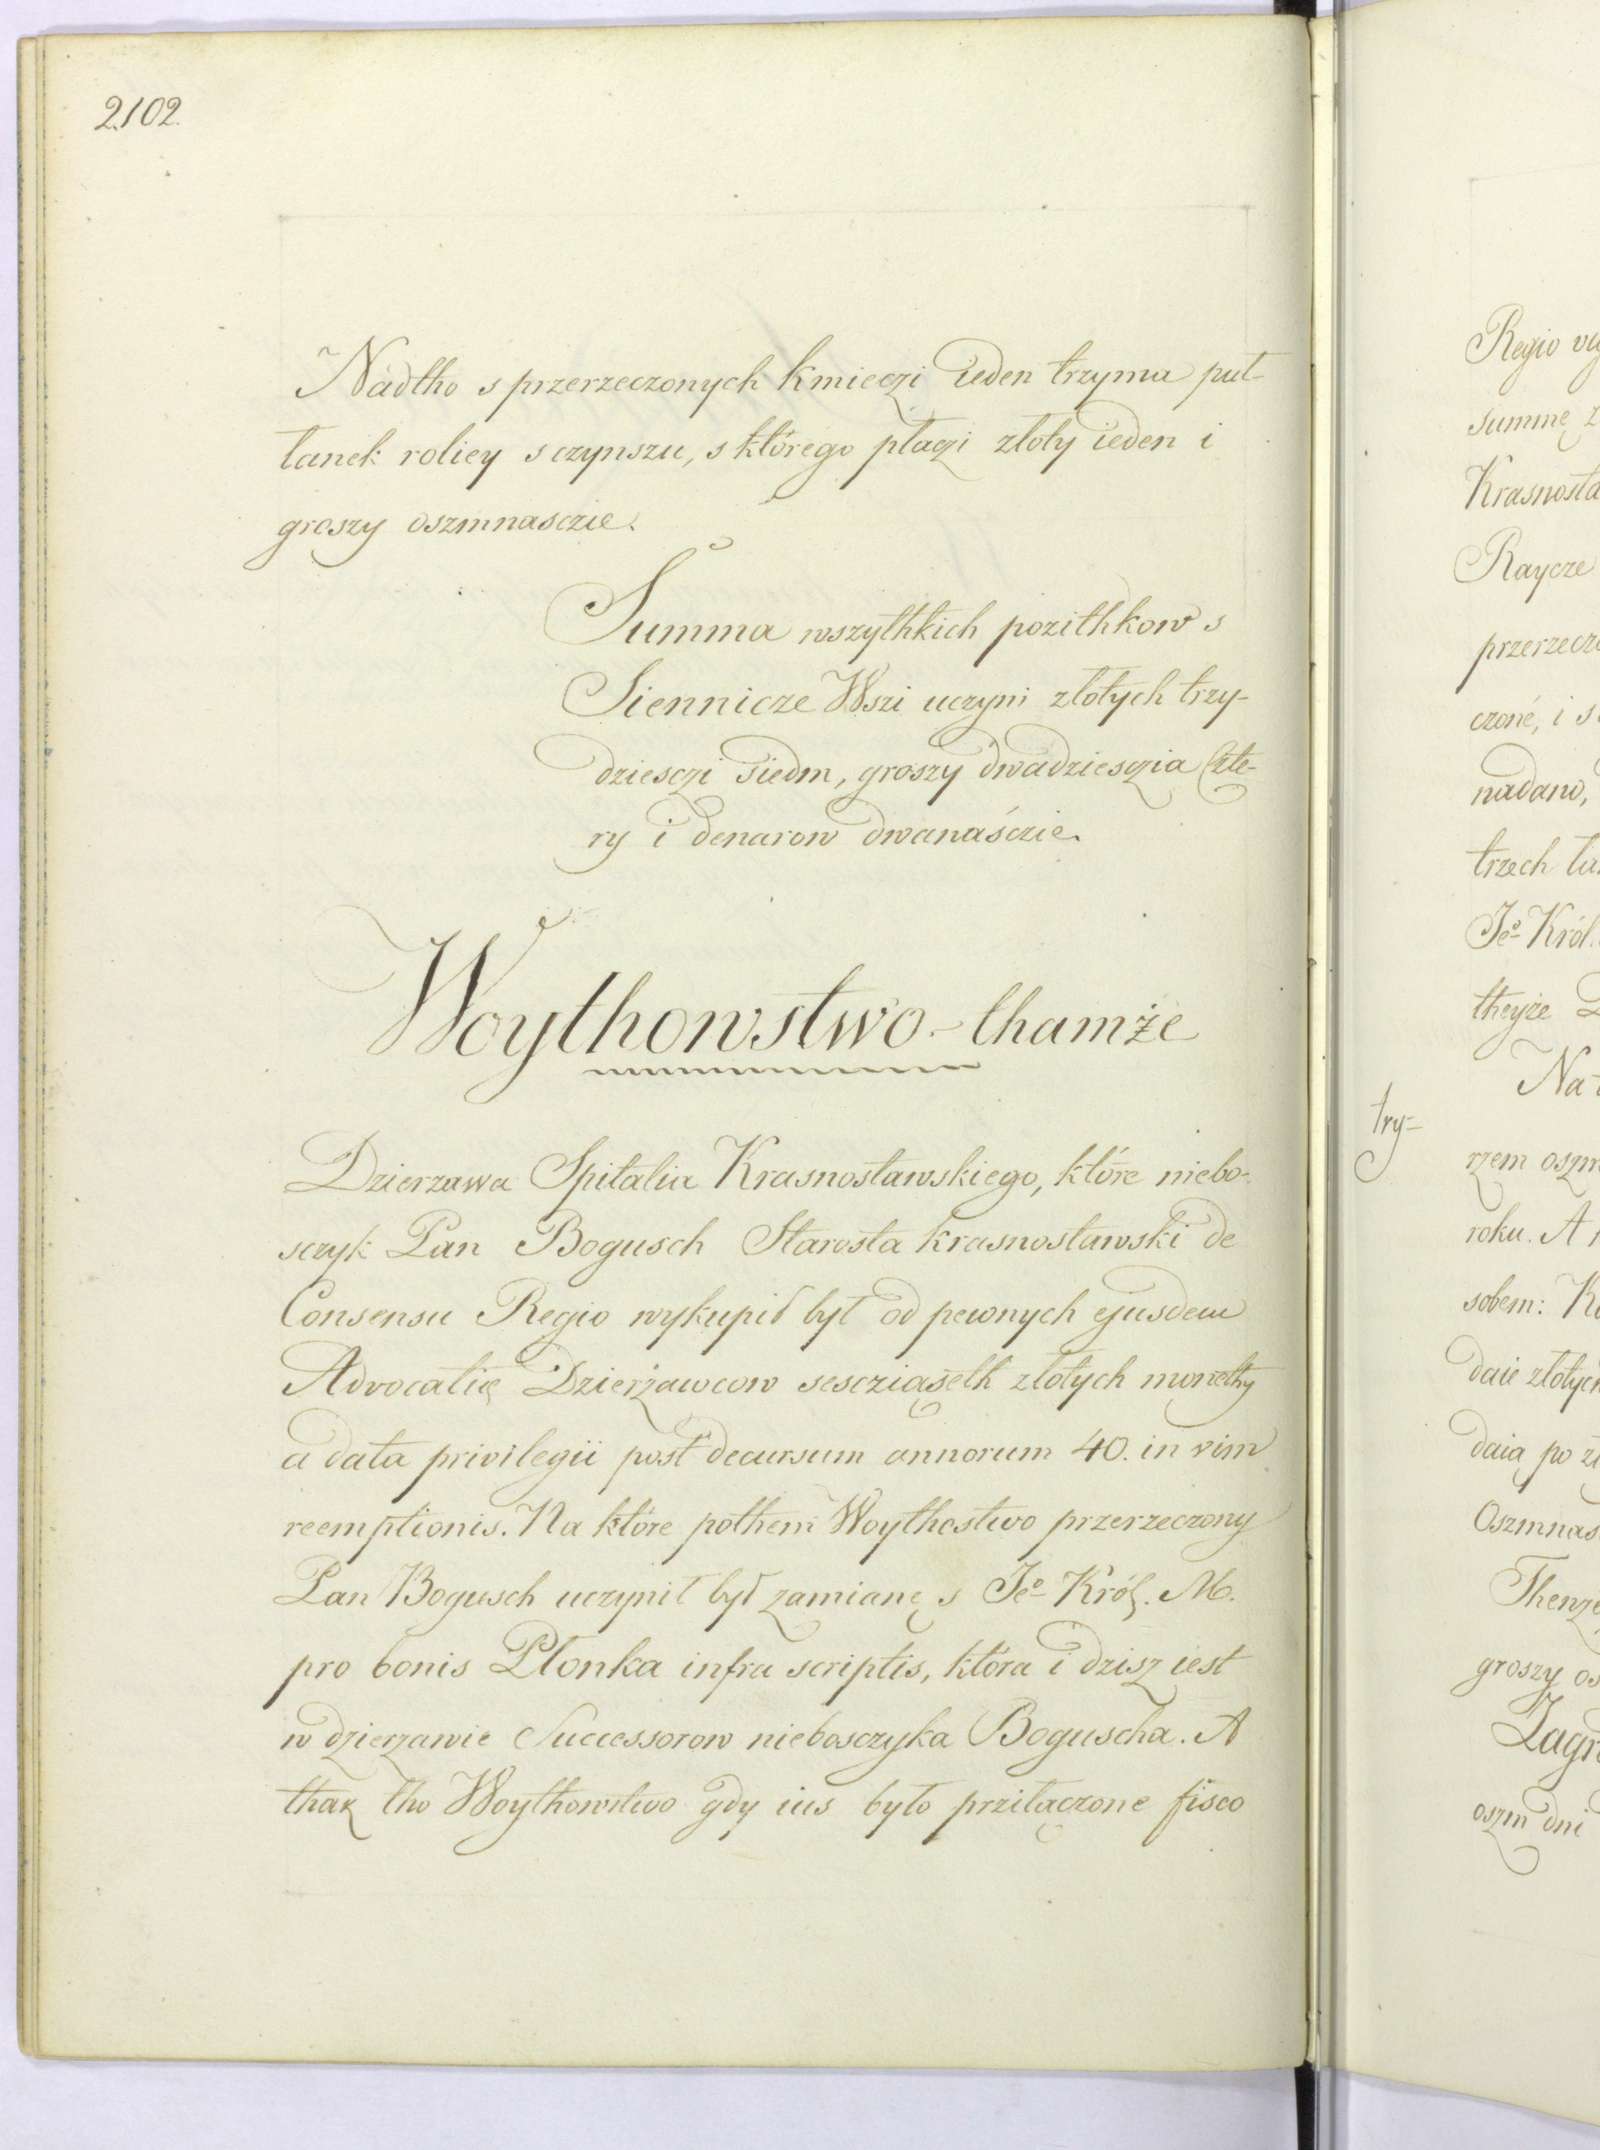 2102.
Nadtho s przerzeczonych kmieczi ieden trzyma puł-
łanek roliey s czynszu, s którego płaczi złoty ieden i
groszy oszmnasczie.
Summa wszythkich pozithkow s
Siennicze Wszi uczyni złotych trzy-
dziesczi siedm, groszy dwadziesczia czte-
ry i denarow dwanaśczie.
Woythowstwo-thamże
Dzierzawa Spitalia Krasnostawskiego, które niebo-
sczyk Pan Bogusch Starosta krasnostawski de
Consensu Regio wykupił był od pewnych ejusdem
Advocatię Dzierżawcow sescziąseth złotych monethy
a data privilegii post decursum annorum 40. in vim
reemptionis. Na które pothem Woythostwo przerzeczony
Pan Bogusch uczynił był zamianę s Jeo Król. M.
pro bonis Płonka infra scriptis, która i dzisz iest
w dzierzawie Successorow niebosczyka Boguscha. A
thak tho Woythowstwo gdy ius było prziłączone fisco
Regio
summę
Krasnosta
Raycze
przerzecz
czoné, i s
nadano,
trzech
Jeo Król.
theyże
Na
try-
rzem oszm
roku. A
sobem:
daie złotych
daią po
Oszmnas
groszy
oszm dni